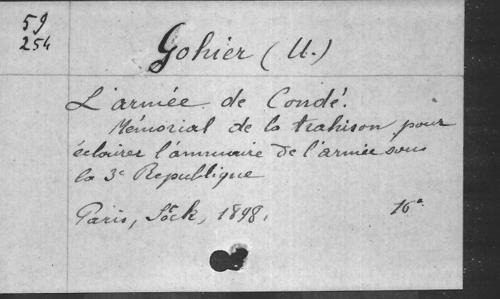 59
254
Gohier (U.)
L'armée de Condé.
Mémorial de la trahison pour
éclairer l'annuaire de l'armée sous
la 3e Republique
Paris, Stock, 1898.
16°